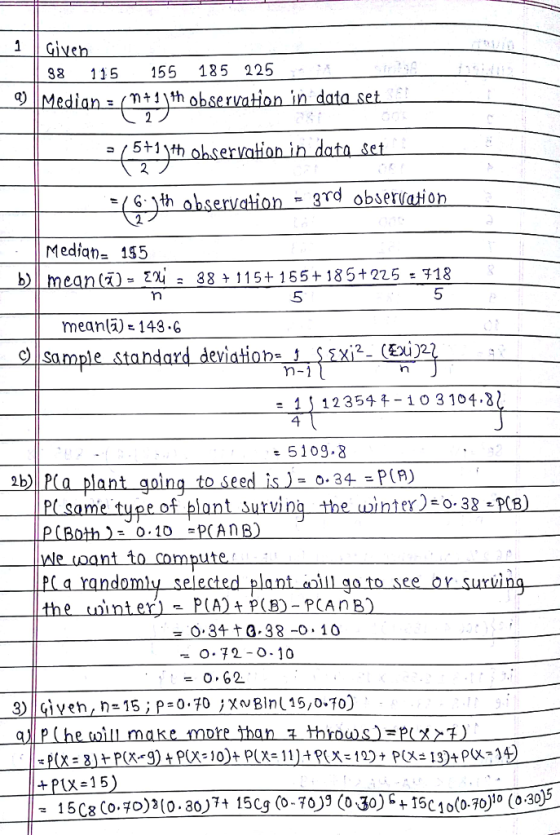 1 Given
38 115 155 185 225
a) Median = (n+1/2)th observation in data set
= (5+1/2)th observation in data set
= (6/2)th observation = 3rd observation
Median = 155
b) mean(x̄) = Σxi/n = 38+115+155+185+225/5 = 718/5
mean(x̄) = 143.6
c) Sample standard deviation = 1/n-1 {Σxi² - (Σxi)²/n}
= 1/4 {123544 - 103104.8}
= 5109.8
2b) P(a plant going to seed is) = 0.34 = P(A)
P(same type of plant surving the winter) = 0.38 = P(B)
P(Both) = 0.10 = P(A∩B)
We want to compute
P(a randomly selected plant will go to see or surving
the winter) = P(A) + P(B) - P(A∩B)
= 0.34 + 0.38 - 0.10
= 0.72 - 0.10
= 0.62
3) Given, n=15; p=0.70; X~Bin(15,0.70)
a) P(he will make more than 7 throws) = P(X>7)
= P(X=8) + P(X=9) + P(X=10) + P(X=11) + P(X=12) + P(X=13) + P(X=14)
+ P(X=15)
= 15C8 (0.70)⁸ (0.30)⁷ + 15C9 (0.70)⁹ (0.30)⁶ + 15C10 (0.70)¹⁰ (0.30)⁵